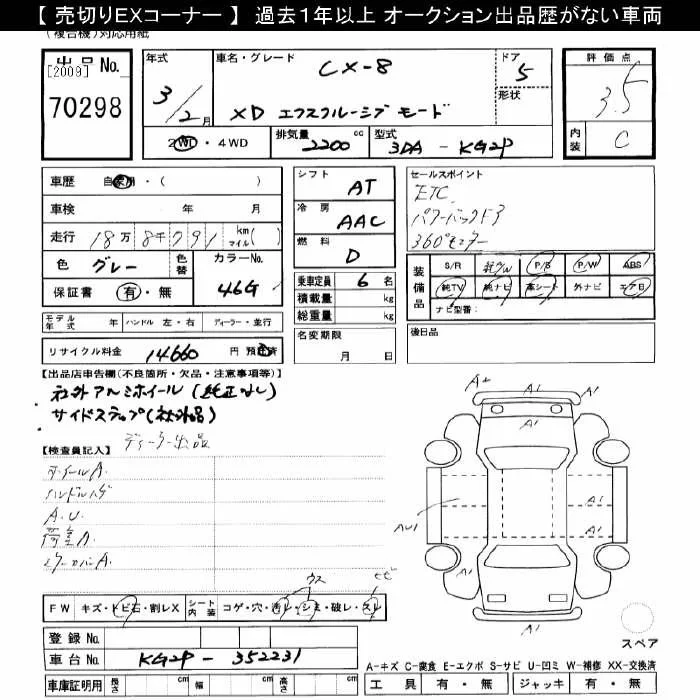 【 売切りEXコーナー 】 過去1年以上 オークション出品歴がない車両
(複合機)対応用紙
出品No.
[2009]
70298
年式
3/2月
車名・グレード
CX-8
XD エクスクルーシブ モード
ドア
5
形状
評価点
3.5
内装
C
2WD・4WD
排気量
2200 cc
型式
3DA - KG2P
車歴 自家用・( )
車検 年 月
走行 18万8千791 km マイル( )
色 グレー 色替
カラーNo. 46G
保証書 有・無
モデル年式 年 ハンドル 左・右 ディーラー・並行
リサイクル料金 14660 円 預託済
シフト AT
冷房 AAC
燃料 D
乗車定員 6 名
積載量 kg
総重量 kg
名変期限
月 日
セールスポイント
ETC
パワーバックドア
360°モニター
装備品
S/R 純AW P/S P/W ABS
純TV 純ナビ 革シート 外ナビ エアB
ナビ型番:
後日品
【出品店申告欄(不良箇所・欠品・注意事項等)】
社外アルミホイール(純正なし)
サイドステップ(社外品)
ディーラー出品
【検査員記入】
ホイールA
ハンドルハゲ
A.U
荷室A
ミラーカバーA
A2 A1
A1
A1
AU1 A1
A1
A1
A1 A1
スペア
FW キズ・トビ石・割レX シート内装 コゲ・穴・汚レ・シミ・破レ・スレ
登録No.
車台No. KG2P - 352231
車庫証明用 長さ cm 幅 cm 高さ cm
A-キズ C-腐食 E-エクボ S-サビ U-凹ミ W-補修 XX-交換済
工具 有・無 ジャッキ 有・無